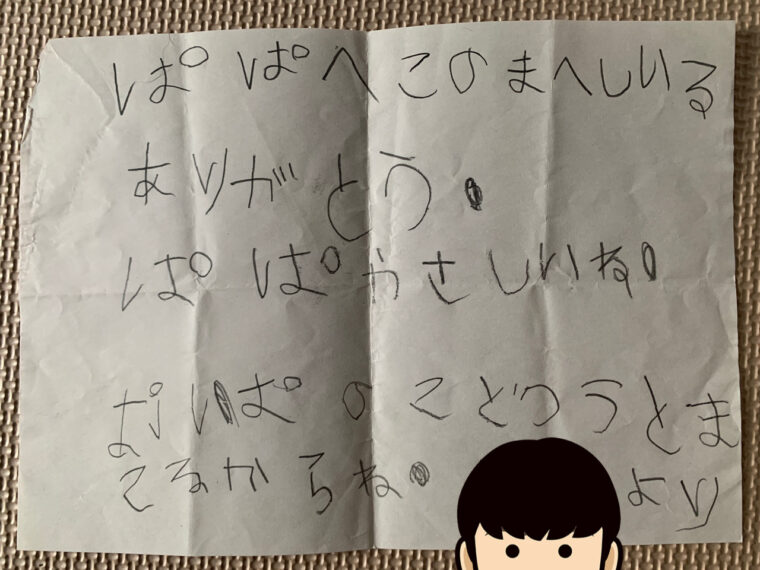 ぱぱへこのまへしいる
ありがとう。
ぱぱやさしいね。
ぱぱのこどつうとま
てるからね。 より